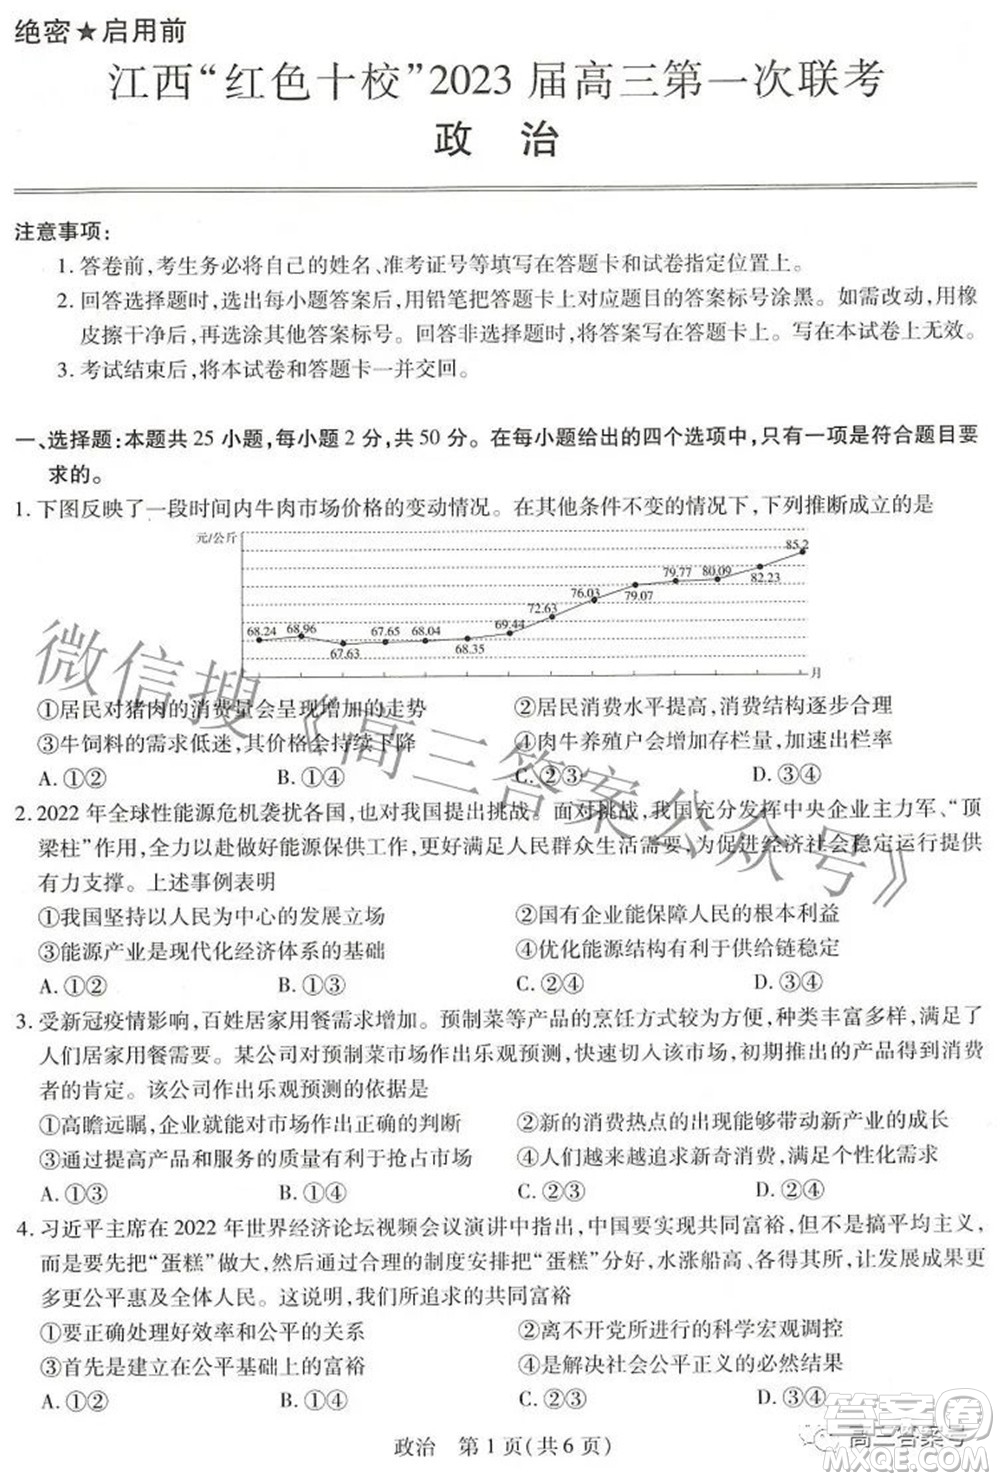 绝密★启用前
江西“红色十校”2023届高三第一次联考
政 治
注意事项：
1. 答卷前，考生务必将自己的姓名、准考证号等填写在答题卡和试卷指定位置上。
2. 回答选择题时，选出每小题答案后，用铅笔把答题卡上对应题目的答案标号涂黑。如需改动，用橡
皮擦干净后，再选涂其他答案标号。回答非选择题时，将答案写在答题卡上。写在本试卷上无效。
3. 考试结束后，将本试卷和答题卡一并交回。
一、选择题：本题共 25 小题，每小题 2 分，共 50 分。在每小题给出的四个选项中，只有一项是符合题目要
求的。
1. 下图反映了一段时间内牛肉市场价格的变动情况。在其他条件不变的情况下，下列推断成立的是
元/公斤
68.24 68.96 67.63 67.65 68.04 68.35 69.44 72.63 76.03 79.07 79.77 80.09 82.23 85.2
月
①居民对猪肉的消费量会呈现增加的走势 ②居民消费水平提高，消费结构逐步合理
③牛饲料的需求低迷，其价格会持续下降 ④肉牛养殖户会增加存栏量，加速出栏率
A. ①② B. ①④ C. ②③ D. ③④
2. 2022 年全球性能源危机袭扰各国，也对我国提出挑战。面对挑战，我国充分发挥中央企业主力军、“顶
梁柱”作用，全力以赴做好能源保供工作，更好满足人民群众生活需要，为促进经济社会稳定运行提供
有力支撑。上述事例表明
①我国坚持以人民为中心的发展立场 ②国有企业能保障人民的根本利益
③能源产业是现代化经济体系的基础 ④优化能源结构有利于供给链稳定
A. ①② B. ①③ C. ②④ D. ③④
3. 受新冠疫情影响，百姓居家用餐需求增加。预制菜等产品的烹饪方式较为方便，种类丰富多样，满足了
人们居家用餐需求。某公司对预制菜市场作出乐观预测，快速切入该市场，初期推出的产品得到消费
者的肯定。该公司作出乐观预测的依据是
①高瞻远瞩，企业就能对市场作出正确的判断 ②新的消费热点的出现能够带动新产业的成长
③通过提高产品和服务的质量有利于抢占市场 ④人们越来越追求新奇消费，满足个性化需求
A. ①③ B. ①④ C. ②③ D. ②④
4. 习近平主席在 2022 年世界经济论坛视频会议演讲中指出，中国要实现共同富裕，但不是搞平均主义，
而是要先把“蛋糕”做大，然后通过合理的制度安排把“蛋糕”分好，水涨船高、各得其所，让发展成果更
多更公平惠及全体人民。这说明，我们所追求的共同富裕
①要正确处理好效率和公平的关系 ②离不开党所进行的科学宏观调控
③首先是建立在公平基础上的富裕 ④是解决社会公平正义的必然结果
A. ①② B. ①③ C. ②④ D. ③④
政治 第 1 页（共 6 页）
微信搜《高三答案公众号》
答案卷
高三答案号